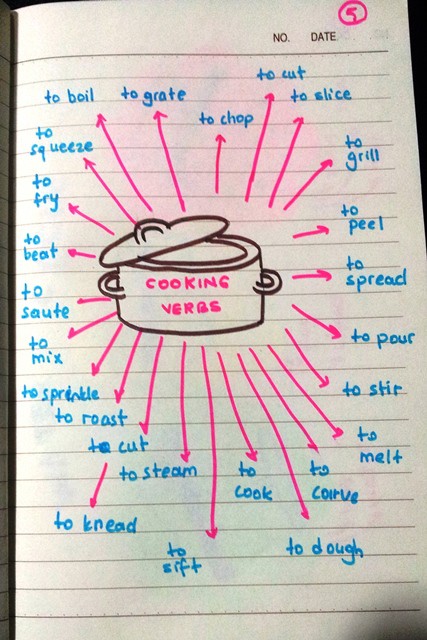 5
NO.
DATE
to cut
to boil
to grate
to slice
to chop
to
squeeze
to
grill
to
fry
to
peel
to
beat
to
spread
COOKING
VERBS
to
saute
to
mix
to pour
to sprinkle
to stir
to roast
to cut
to
melt
to steam
to
cook
to
carve
to knead
to
sift
to dough